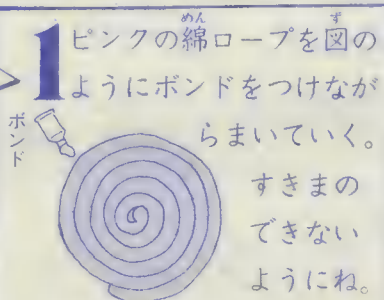 1 ピンクの綿ロープを図の
ようにボンドをつけなが
らまいていく。
すきまの
できない
ようにね。
めん
ず
ボンド